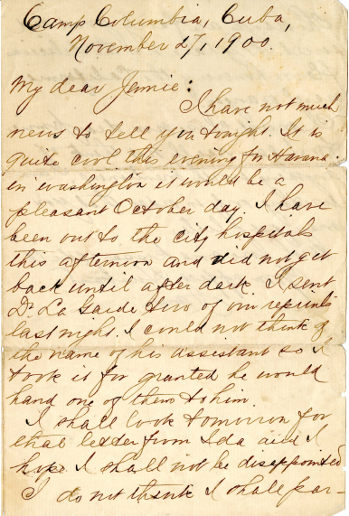 Camp Columbia, Cuba,
November 27, 1900.
My dear Jennie:
I have not much
news to tell you tonight. It is
quite cool this evening for Havana
in Washington it would be a
pleasant October day. I have
been out to the city hospitals
this afternoon and did not get
back until after dark. I sent
Dr. La Garde two of our reprints
last night. I could not think of
the name of his assistant so I
took it for granted he would
hand one of them to him.
I shall look tomorrow for
that letter from and I
hope I shall not be disappointed
I do not think I shall par-